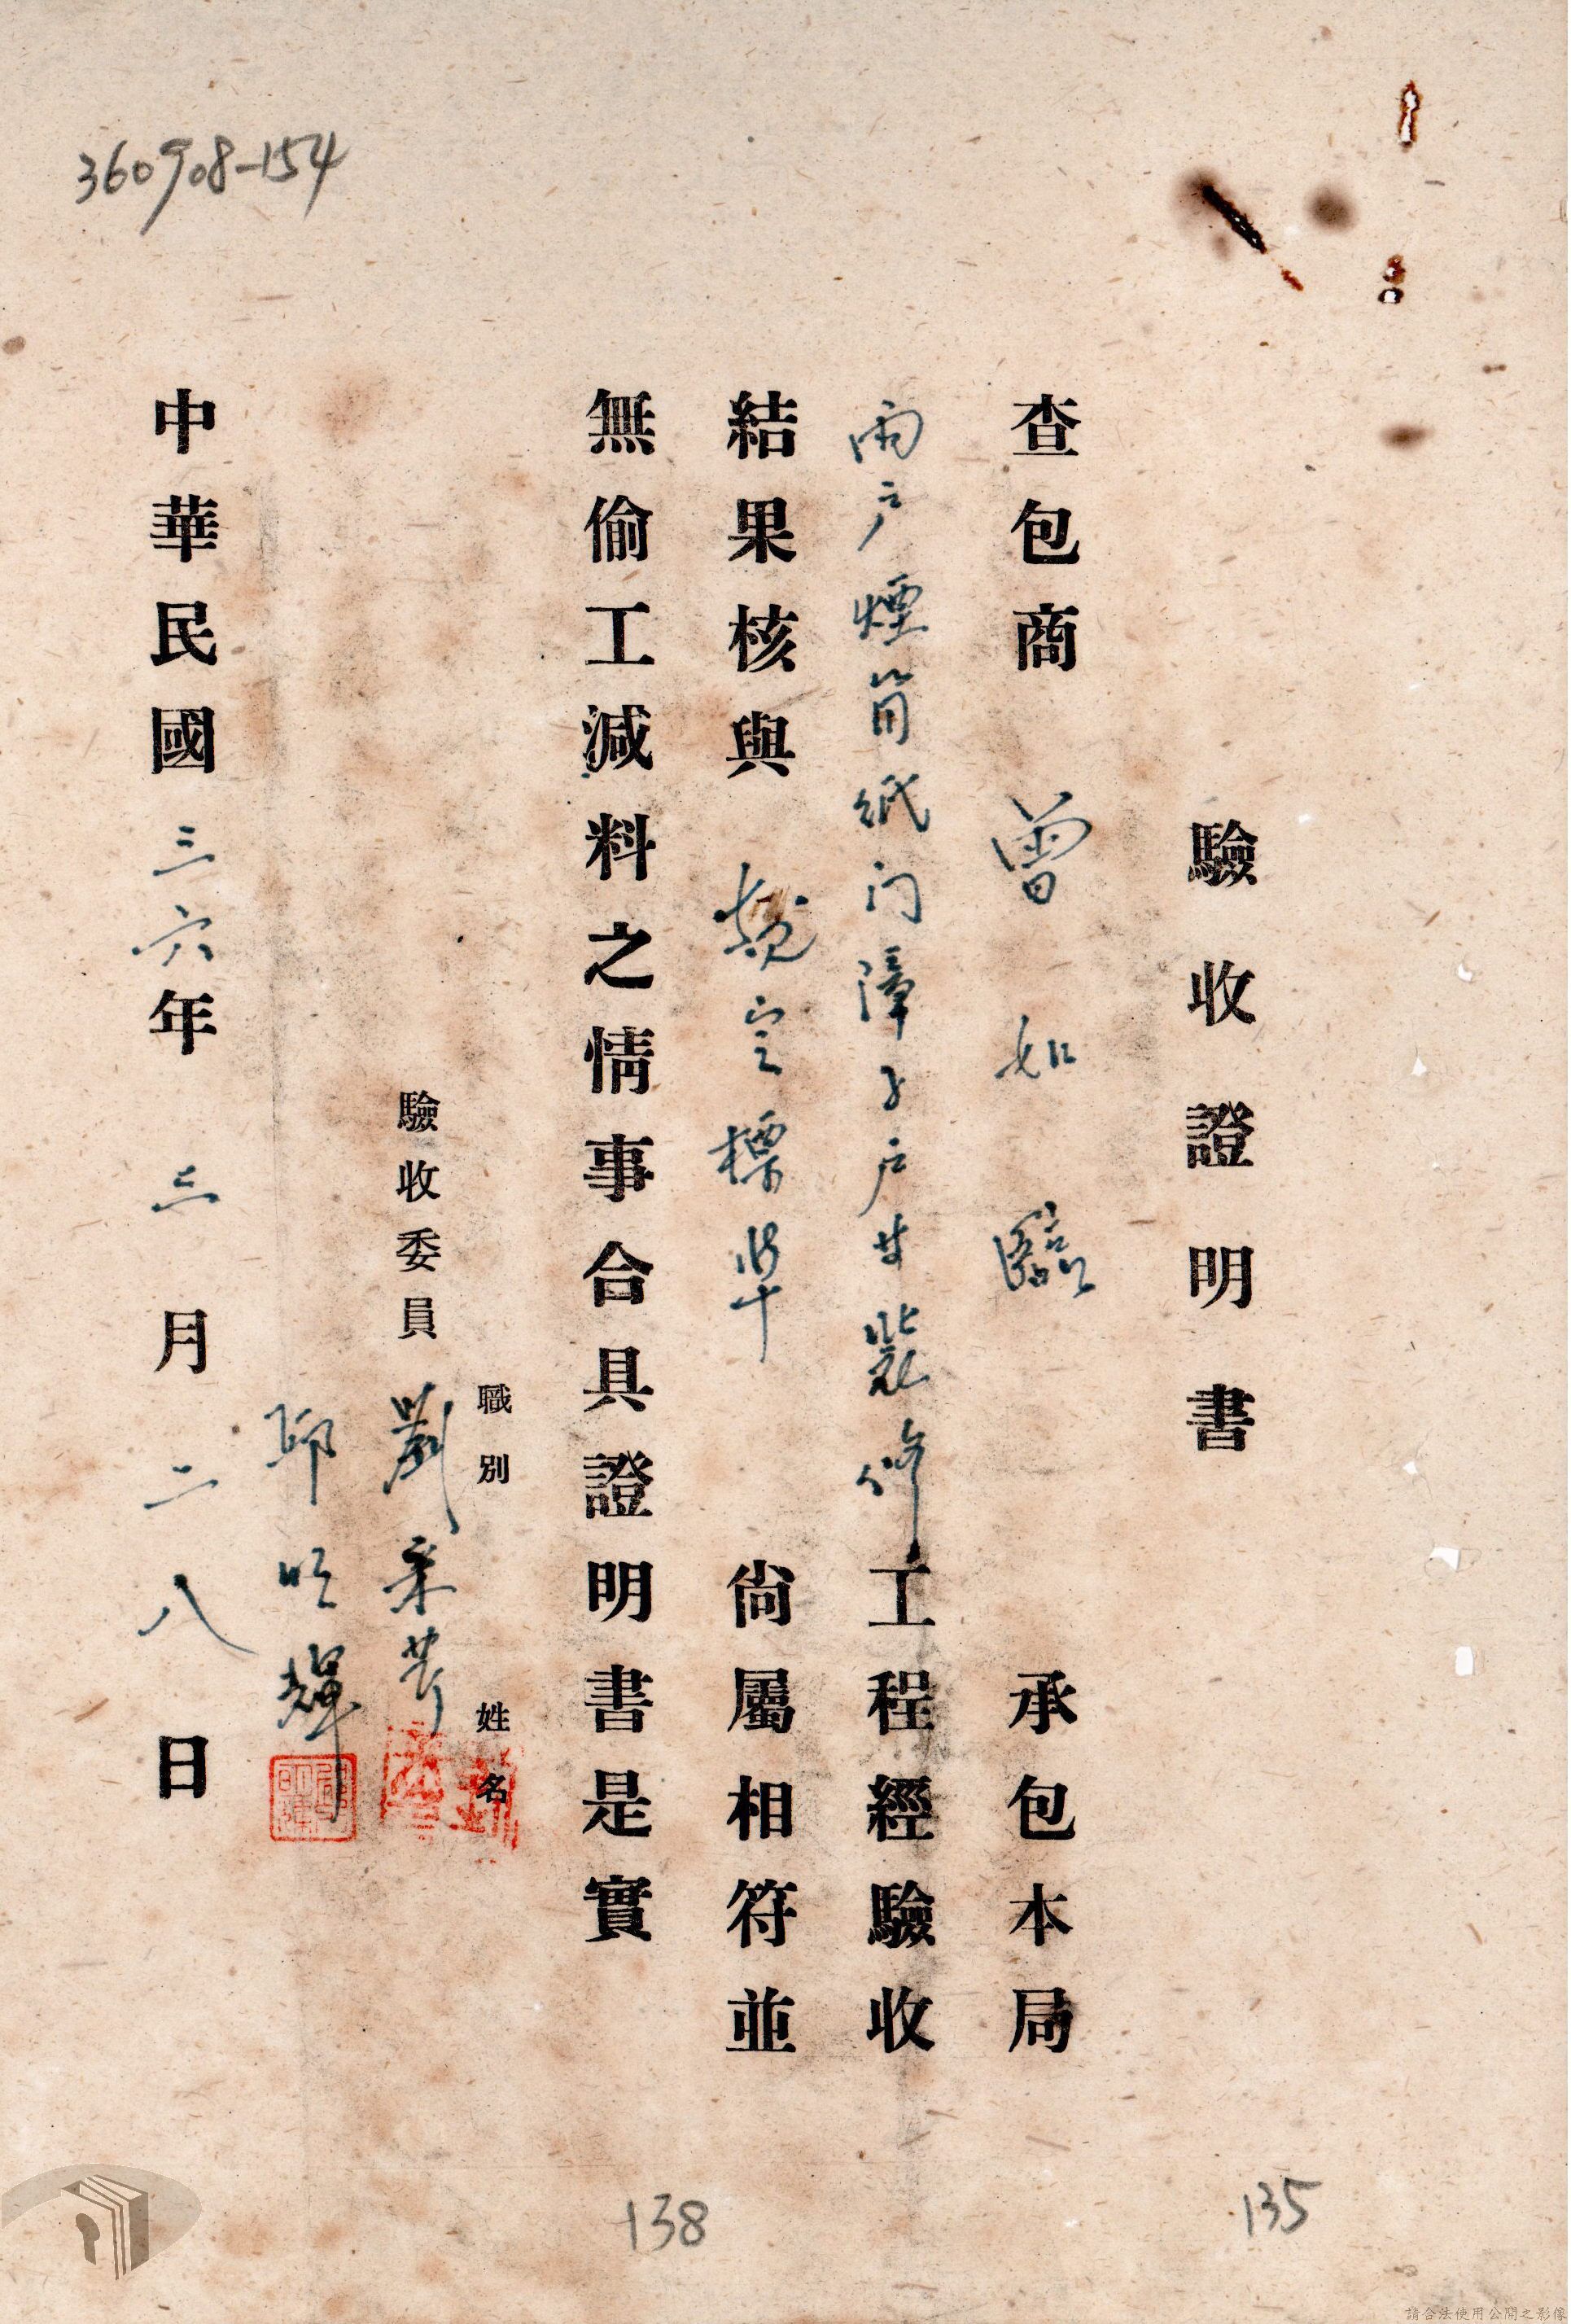 360908-154
驗收證明書
查包商 曾如 承包本局
雨户煙筒纸门障子户女裝修工程經驗收
結果核與 規定標準 尚屬相符並
無偷工減料之情事合具證明書是實
職別 姓名
驗收委員 劉
邱明輝
中華民國三六年三月二八日
138
135
請合法使用公開之影像